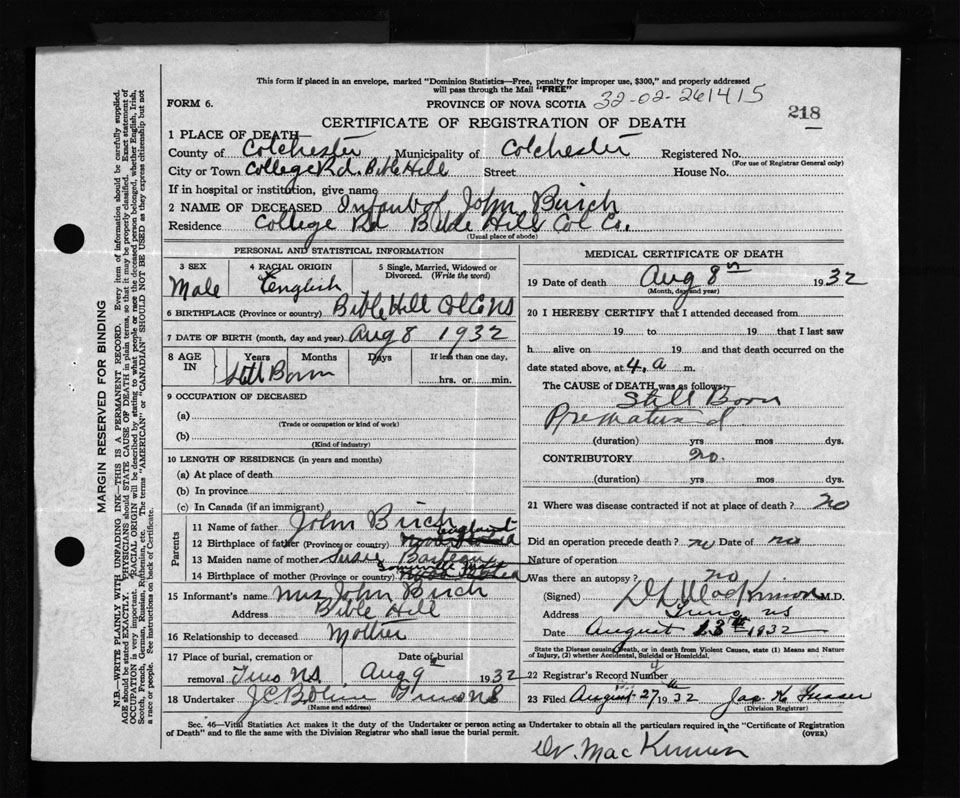 This form if placed in an envelope, marked "Dominion Statistics—Free, penalty for improper use, $300," and properly addressed
will pass through the Mail "FREE"
FORM 6.
PROVINCE OF NOVA SCOTIA 32-02-261415
218
CERTIFICATE OF REGISTRATION OF DEATH
1 PLACE OF DEATH—
County of Colchester Municipality of Colchester Registered No.
(For use of Registrar General only)
City or Town College Rd. Bible Hill Street House No.
If in hospital or institution, give name
2 NAME OF DECEASED Infant of John Birch
Residence College Rd Bible Hill Col Co.
(Usual place of abode)
PERSONAL AND STATISTICAL INFORMATION
3 SEX 4 RACIAL ORIGIN 5 Single, Married, Widowed or
Divorced. (Write the word)
Male English
6 BIRTHPLACE (Province or country) Bible Hill Col Co NS
7 DATE OF BIRTH (month, day and year) Aug 8 1932
8 AGE IN Years Months Days If less than one day,
Still Born hrs. or min.
9 OCCUPATION OF DECEASED
(a)
(Trade or occupation or kind of work)
(b)
(Kind of industry)
10 LENGTH OF RESIDENCE (in years and months)
(a) At place of death
(b) In province
(c) In Canada (if an immigrant)
Parents
11 Name of father John Birch
England
12 Birthplace of father (Province or country) Nova Scotia
13 Maiden name of mother Susie
14 Birthplace of mother (Province or country) Nova Scotia
15 Informant's name Mrs John Birch
Address Bible Hill
16 Relationship to deceased Mother
17 Place of burial, cremation or Date of burial
removal Truro NS. Aug 9 1932
18 Undertaker Truro NS
(Name and address)
MEDICAL CERTIFICATE OF DEATH
19 Date of death Aug 8th 1932
(Month, day and year)
20 I HEREBY CERTIFY that I attended deceased from
19 to 19 that I last saw
h alive on 19 and that death occurred on the
date stated above, at 4. a m.
The CAUSE of DEATH was as follows:
Still Born
Premature
(duration) yrs mos dys.
CONTRIBUTORY no.
(duration) yrs mos dys.
21 Where was disease contracted if not at place of death? no
Did an operation precede death? no Date of no
Nature of operation
Was there an autopsy? no
(Signed) D L MacKinnon M.D.
Address Truro NS
Date August 13th 1932
State the Disease causing Death, or in death from Violent Causes, state (1) Means and Nature
of Injury, (2) whether Accidental, Suicidal or Homicidal.
22 Registrar's Record Number
23 Filed August 27th 1932 Jas. K
(Division Registrar)
Sec. 46—Vital Statistics Act makes it the duty of the Undertaker or person acting as Undertaker to obtain all the particulars required in the "Certificate of Registration
of Death" and to file the same with the Division Registrar who shall issue the burial permit.
(OVER)
Dr. MacKinnon
MARGIN RESERVED FOR BINDING
N.B.—WRITE PLAINLY WITH UNFADING INK—THIS IS A PERMANENT RECORD. Every item of information should be carefully supplied.
AGE should be stated EXACTLY. PHYSICIANS should STATE CAUSE OF DEATH in plain terms, so that it may be properly classified. Exact statement of
OCCUPATION is very important. RACIAL ORIGIN will be described by stating to what people or race the deceased person belonged, whether English, Irish,
Scotch, French, German, Russian, Ruthenian, etc. The terms "AMERICAN" or "CANADIAN" SHOULD NOT BE USED as they express citizenship but not
a race or people. See instructions on back of Certificate.